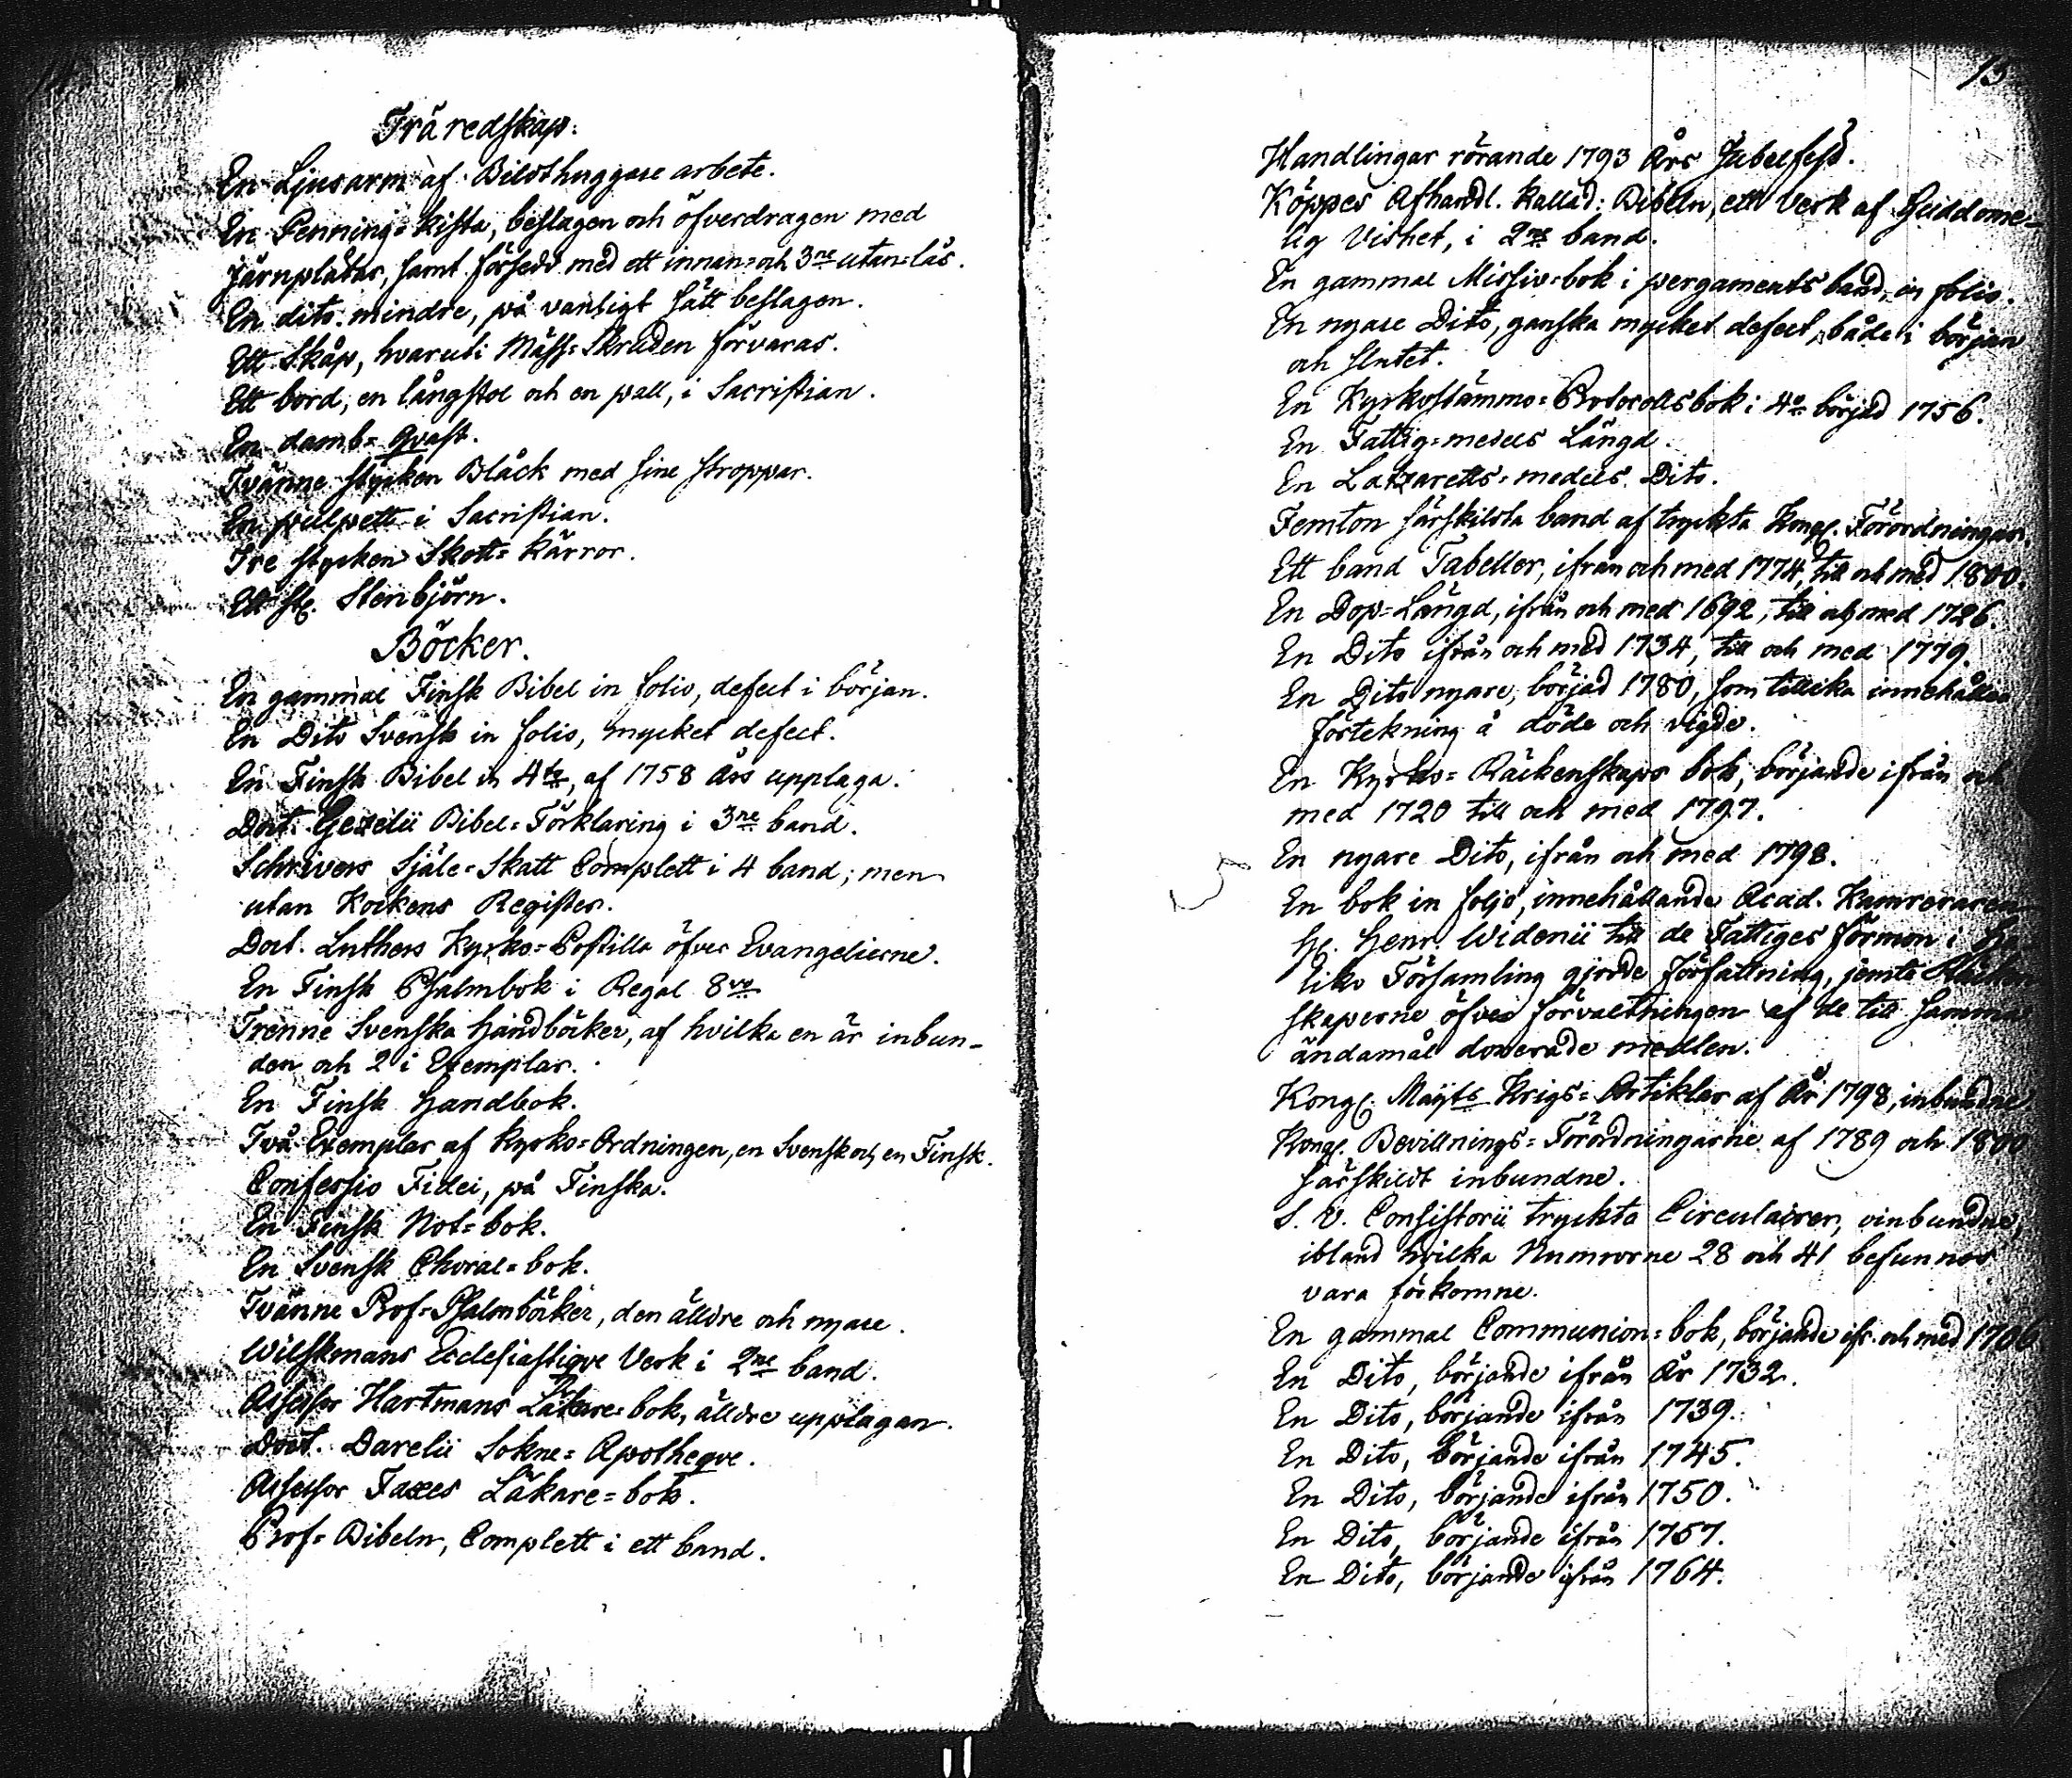 Träredskap.
En Ljusarm af Bildthuggare arbete.
En Penning=Kista, beslagen och öfverdragen med
Järnplåtar, samt försedd med ett innan=och 3ne utan=lås.
En dito mindre, på vanligt sätt beslagen.
Ett Skåp, hvaruti Mäss=Skruden förvaras.
Ett bord, en långstol och en pall, i Sacristian.
En damb=Qvast.
Tvänne stycken Bläck med sine stroppar.
En pulpett i Sacristian.
Tre stycken Skott=Kärror.
Ett st. Stenbjörn.
Böcker.
En gammal Finsk Bibel in folio, defect i början.
En Dito Svensk in folio, mycket defect.
En Finsk Bibel in 4to, af 1758 Års upplaga.
Doct. Gezelii Bibel=Förklaring i 3ne band.
Schrivers Själe=Skatt Complett i 4 band; men
utan Kockens Register.
Doct. Luthers Kyrko=Postilla öfver Evangelierne.
En Finsk Psalmbok i Regal 8vo
Trenne Svenska Handböcker, af hvilka en är inbun-
den och 2 i Exemplar.
En Finsk Handbok.
Två Exemplar af Kyrko=Ordningen, en Svensk och en Finsk.
Confessio Fidei, på Finska.
En Finsk Not=bok.
En Svensk Choral=bok.
Tvänne Prof=Psalmböcker, den äldre och nyare.
Wilskmans Ecclesiastiqve Verk i 2ne band.
Assessor Hartmans Läkare=bok, äldre upplagan.
Doct. Darelii Sokne=Apotheqve.
Assessor Faxes Läkare=bok.
Prof=Bibeln, Complett i ett band.
13
Handlingar rörande 1793 Års Jubelfest.
Köppes Afhandl. kallad: Bibeln, ett Verk af Guddome-
lig Vishet, i 2ne band.
En gammal Missiv=bok i pergaments band, in folio.
En nyare Dito, ganska mycket defect, både i början
och slutet.
En Kyrkostämmo=Protocollsbok i 4o börjad 1756.
En Fattig=medels Längd.
En Lazaretts=medels Dito.
Femton särskildta band af tryckta Kongl. Förordningar.
Ett band Tabeller, ifrån och med 1774, till och med 1800.
En Dop=Längd, ifrån och med 1692, till och med 1726.
En Dito ifrån och med 1734, till och med 1779.
En Dito nyare, börjad 1780, som tillika innehåller
förtekning å döde och vigde.
En Kyrko=Räkenskaps bok, börjande ifrån och
med 1720 till och med 1797.
En nyare Dito, ifrån och med 1798.
En bok in folio, innehållande Acad. Kamreraren
H. Henr. Widenii till de Fattiges förmon i
liko Församling gjorde författning, jemte
skaperne öfver förvaltningen af de till samma
ändamål donerade medlen.
Kongl. Maÿts Krigs=Artiklar af År 1798, inbundne
Kongl. Bevillnings=Förordningarne af 1789 och 1800
särskildt inbundne.
S. V. Consistorii tryckta Circulairer, oinbundne,
ibland hvilka Numrorne 28 och 41 befunnos
vara förkomne.
En gammal Communion=bok, börjande ifr. och med 1706
En Dito, börjande ifrån År 1732.
En Dito, börjande ifrån 1739.
En Dito, börjande ifrån 1745.
En Dito, börjande ifrån 1750.
En Dito, börjande ifrån 1757.
En Dito, börjande ifrån 1764.